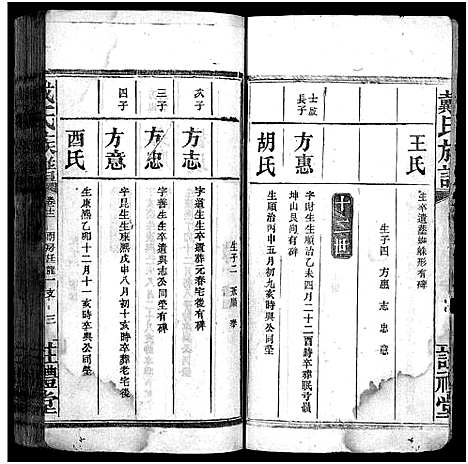 戴氏族譜
王氏
生卒遺葬蜘蛛形有碑
生子四 方惠 志 忠 意
十二世
士成
長子
方惠
字財生生順治乙未四月二十二酉時卒葬眠弓嶺
坤山艮向有碑
胡氏
生順治丙申五月初九亥時與公同塋
次子
方志
字道生生卒遺葬元春宅後有碑
生子二
三子
方忠
字善生生卒遺與志公同塋有碑
四子
方意
字昆生生康熙戊申八月初十亥時卒葬老宅後
有碑
酉氏
生康熙乙卯十二月十一亥時卒與公同塋
戴氏族譜